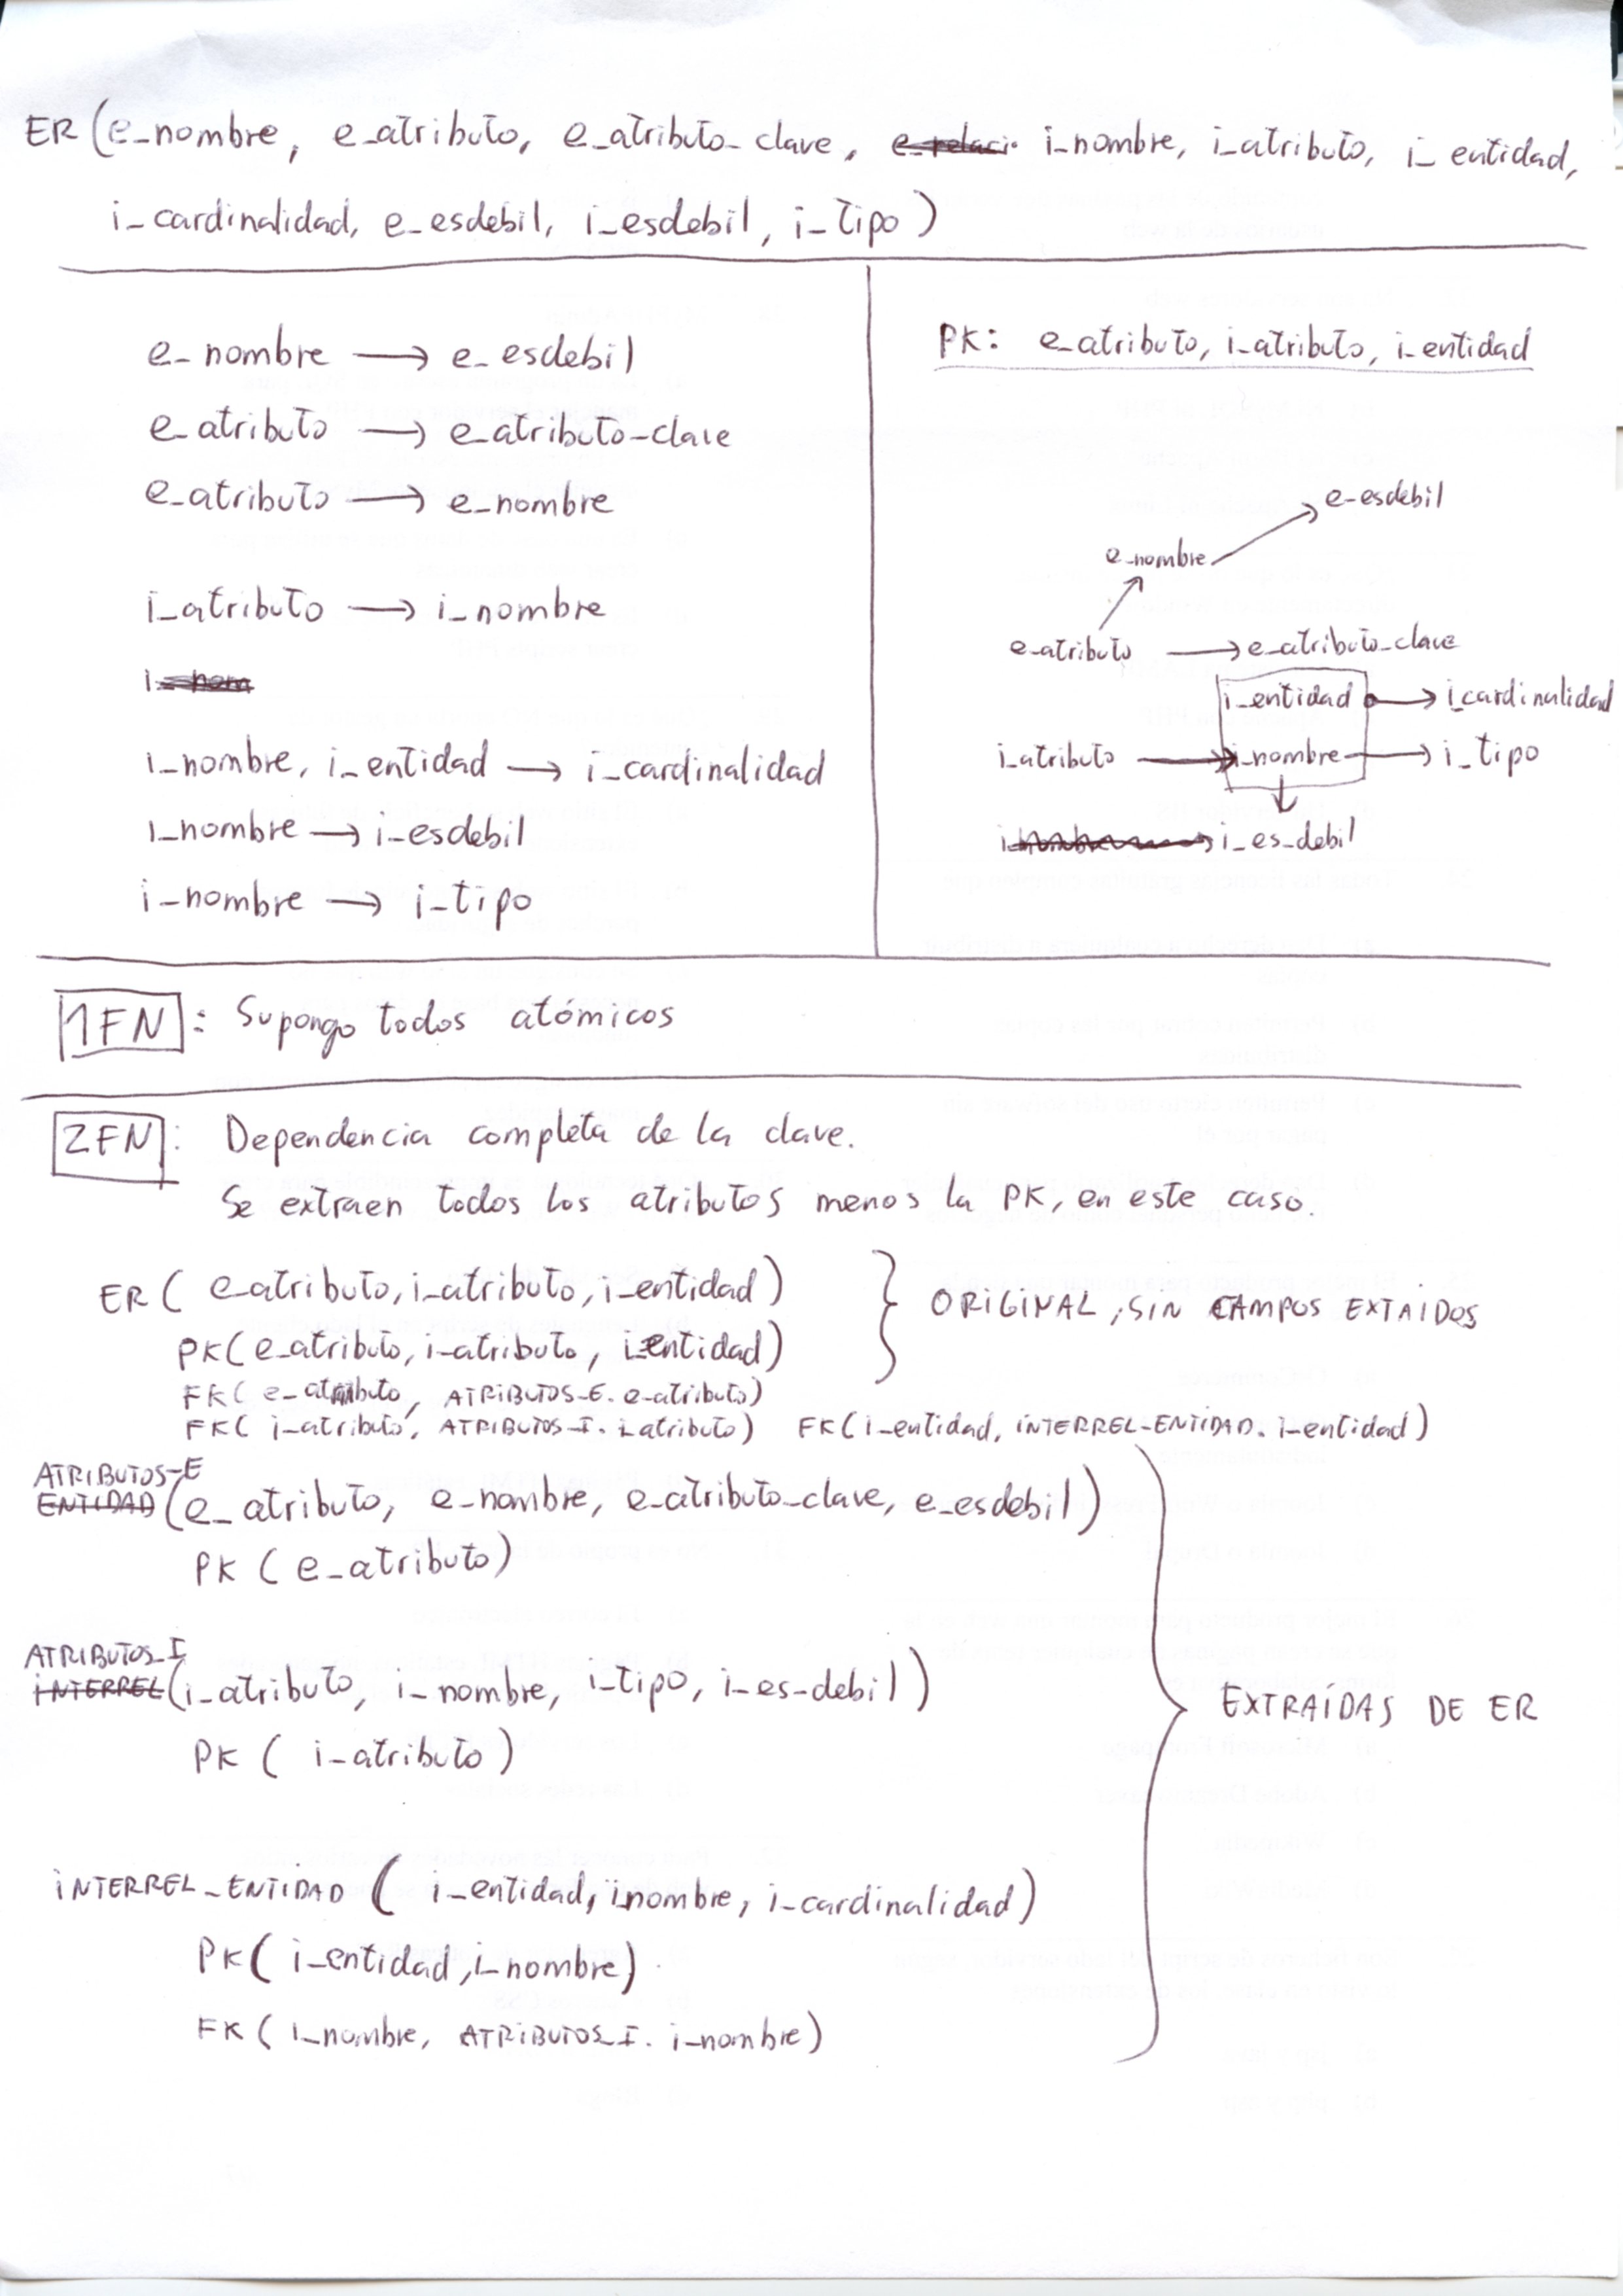 ER (e_nombre, e_atributo, e_atributo_clave, i_nombre, i_atributo, i_entidad,
i_cardinalidad, e_esdebil, i_esdebil, i_tipo)
e_nombre → e_esdebil
e_atributo → e_atributo-clave
e_atributo → e_nombre
i_atributo → i_nombre
i_nom
i_nombre, i_entidad → i_cardinalidad
i_nombre → i-esdebil
i_nombre → i_tipo
PK: e_atributo, i_atributo, i_entidad
e-esdebil
e_nombre
e_atributo → e_atributo_clave
i_entidad → i_cardinalidad
i_atributo → i_nombre → i_tipo
i_es_debil
1FN: Supongo todos atómicos
2FN: Dependencia completa de la clave.
Se extraen todos los atributos menos la PK, en este caso.
ER ( e_atributo, i_atributo, i_entidad)
PK(e_atributo, i_atributo, i_entidad)
ORIGINAL, SIN CAMPOS EXTAIDOS
FK( e_atributo, ATRIBUTOS-E. e_atributo)
FK( i_atributo, ATRIBUTOS-I. i_atributo) FK(i_entidad, INTERREL-ENTIDAD. i_entidad)
ATRIBUTOS-E
ENTIDAD (e_atributo, e_nombre, e_atributo_clave, e_esdebil)
PK (e_atributo)
ATRIBUTOS_I
INTERREL (i_atributo, i_nombre, i_tipo, i_es-debil)
PK ( i_atributo)
EXTRAÍDAS DE ER
INTERREL_ENTIDAD ( i_entidad, i_nombre, i_cardinalidad)
PK( i_entidad, i_nombre)
FK ( i_nombre, ATRIBUTOS_I. i_nombre)